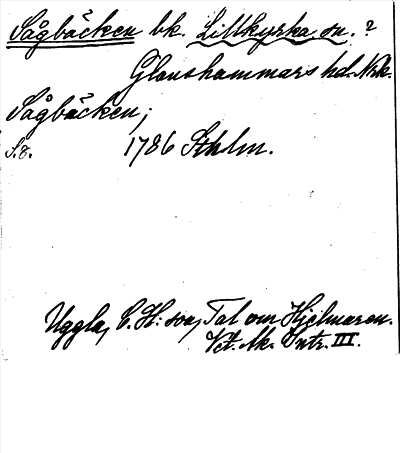 Sågbäcken bk. Lillkyrka sn. ?
Glanshammars hd. Nrk.
Sågbäcken;
S. 8. 1786 Sthlm.
Uggla, C. H:son, Tal om Hjelmaren.
Vet. Ak. Intr. III.